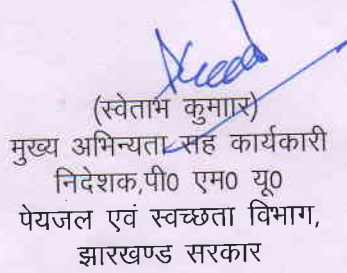 (स्वेताभ कुमाार)
मुख्य अभिन्यता सह कार्यकारी
निदेशक,पी0 एम0 यू0
पेयजल एवं स्वच्छता विभाग,
झारखण्ड सरकार